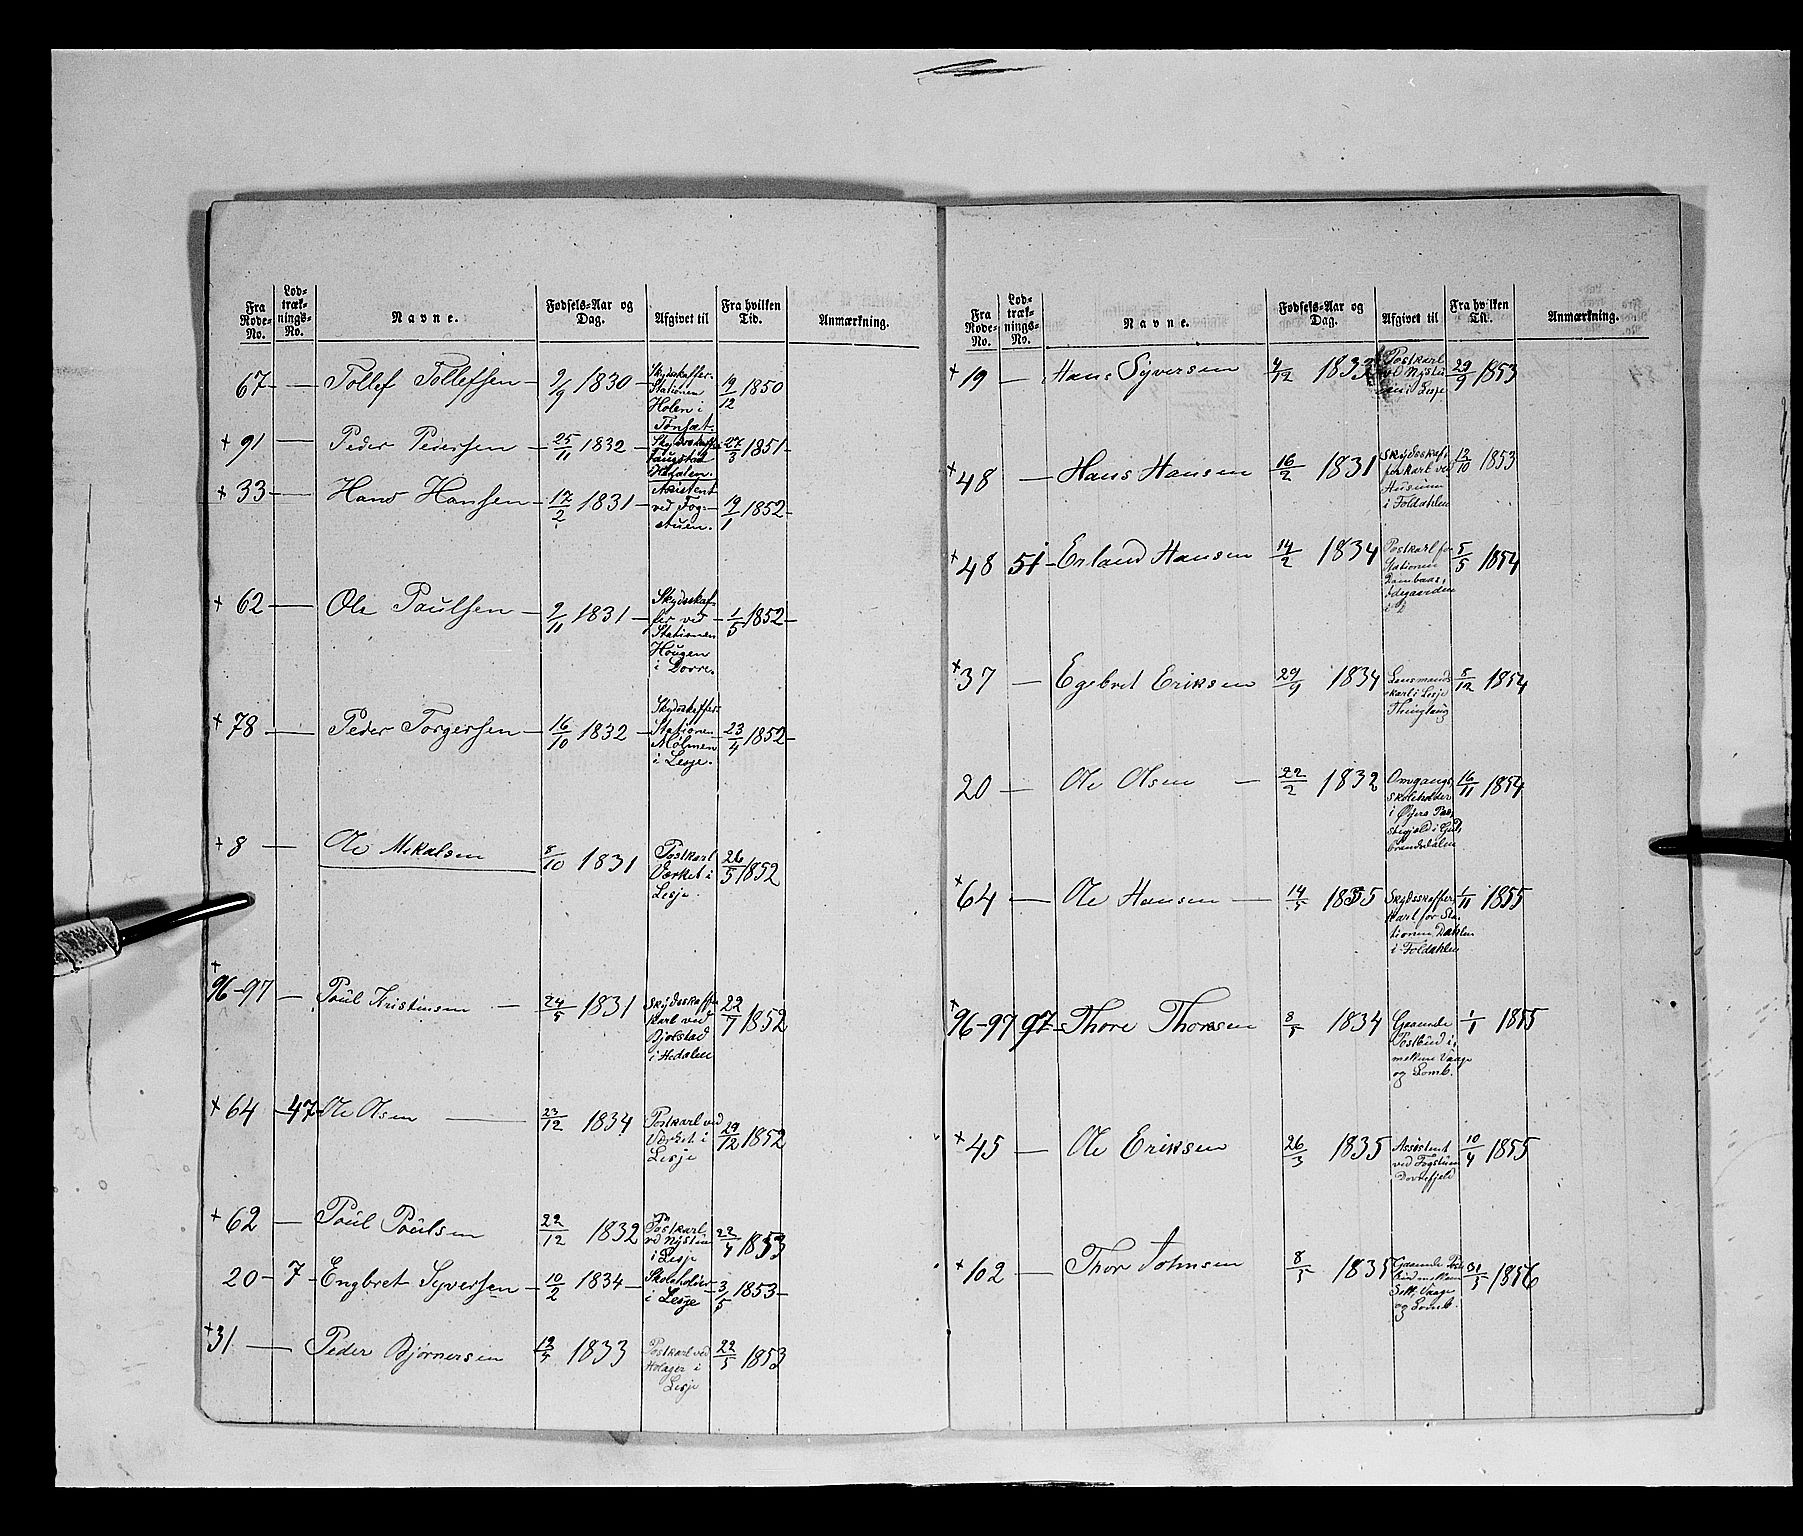 Fra Rode-No. Lod-træk-nings-No. Navne. Fødsels-Aar og Dag. Afgivet til Fra hvilken Tid. Anmærkning.
67 — Tollef Tollefsen — 9/9 1830 — Skydsskaffer-
Stationen 19/12 1850
Holen i
Tønset.
+ 91 — Peder Pedersen — 25/11 1832 — Skydsskaffer 27/3 1851 —
Hedalen.
+ 33 — Hans Hansen — 17/2 1831 — Assistent
ved Fog- 9/1 1852 —
stuen.
+ 62 — Ole Paulsen — 9/11 1831 — Skydsskaf-
fer ved — 1/5 1852 —
Stationen
Hougen
i Dovre.
+ 78 — Peder Torgersen — 16/10 1832 — Skydsskaffer-
Stationen 23/4 1852 —
Mølmen
i Lesje.
+ 8 — Ole Mekalsen 8/10 1831 Postkarl 26/5 1852
Værket i
Lesje.
+ 96-97 — Poul Kristensen — 24/5 1831 Skydsskaffer 22/7 1852
karl ved
Bjølstad
i Hedalen
+ 64 — 47 Ole Olsen — 23/12 1834 Postkarl ved 29/12 1852
Værket i
Lesje
+ 62 — Poul Poulsen 22/12 1832 Postkarl 22/4 1853
vd Nystuen
i Lesje
20 — 7 — Engbret Syversen — 10/2 1834 — Skoleholder — 3/5 1853 —
i Lesje
+ 31 — Peder Bjørnersen 1833 Postkarl ved 22/5 1853
Holager i
Lesje
Fra Rode-No. Lod-træk-nings-No. Navne. Fødsels-Aar og Dag. Afgivet til Fra hvilken Til. Anmærkning.
+ 19 — Hans Syversen 4/12 1832 Postkarl 29/9 1853
ved Nystu-
en i Lesje
+ 48 — Hans Hansen 16/2 1831 Skydsskaf- 1853
ferkarl ved
Husum
i Foldahlen
+ 48 51 — Erland Hansen 14/2 1834 Postkarl for 5/5 1854
Stationen
Dombaas,
i
+ 37 — Egebret Eriksen 29/9 1834 Lensmands 8/12 1854
karl i Lesje
Thinglaug
20 — Ole Olsen — 22/2 1832 Omgangs 16/11 1854
skoleholder
i Øjers Præ-
stegjeld i Gud-
brandsdalen
+ 64 — Ole Hansen — 14/5 1835 Skydsskaffer 1/11 1855
karl for Sta-
tionen Dahlen
i Foldahlen
+ 96-97 97 — Thore Thorsen 8/5 1834 Gaaende 1/1 1855
Postbud i-
mellem Vaage
og Lomb.
+ 45 — Ole Eriksen 26/3 1835 Assistent 10/4 1855
ved Fogstuen
Dovrefjeld
+ 102 — Thor Johnsen 8/5 1835 Gaaende Post 31/5 1856
bud mellem
Sell, Vaage
og Lomb.